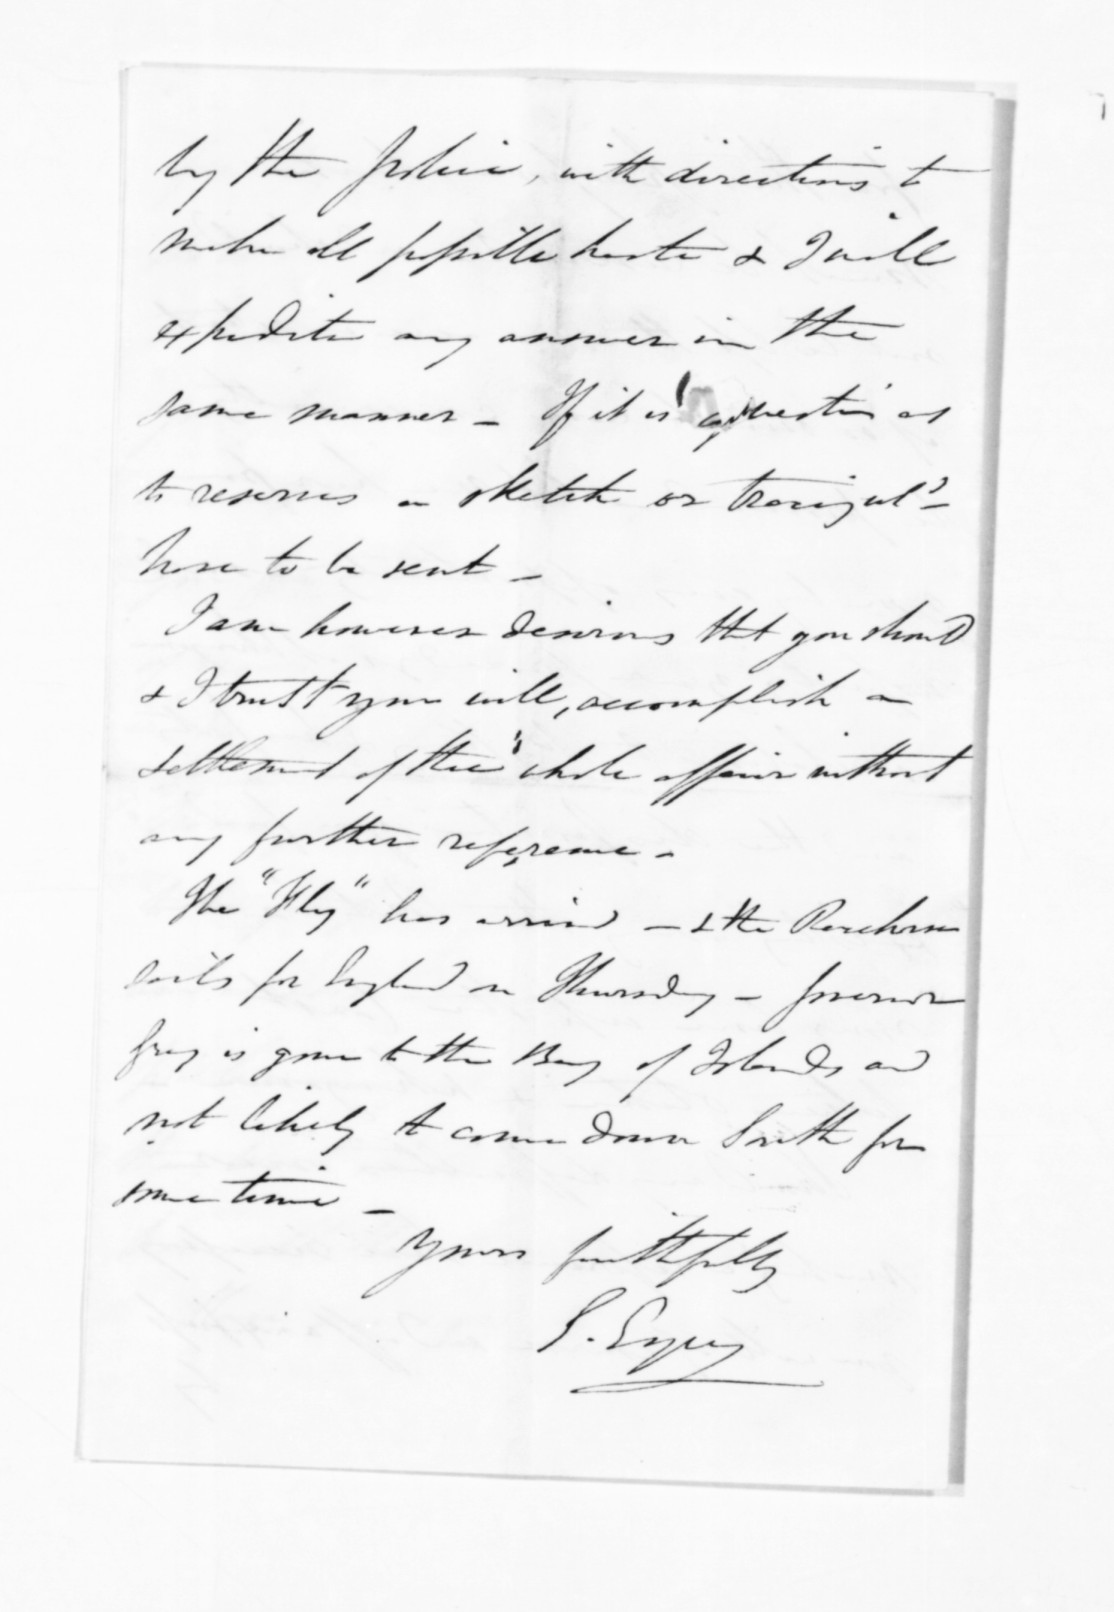 by the police, with directions to
make all possible haste & I will
expedite any answer in the
same manner - If it is a question as
to reserves a sketch or tracing wd
have to be sent -
I am however desirous that you should
& I trust you will, accomplish a
settlement of the whole affair without
any further reference -
The "Fly" has arrived - & the Racehorse
sails for England on Thursday - Governor
Grey is gone to the Bay of Islands and
not likely to come down South for
some time -
Yours faithfully
E. Eyre